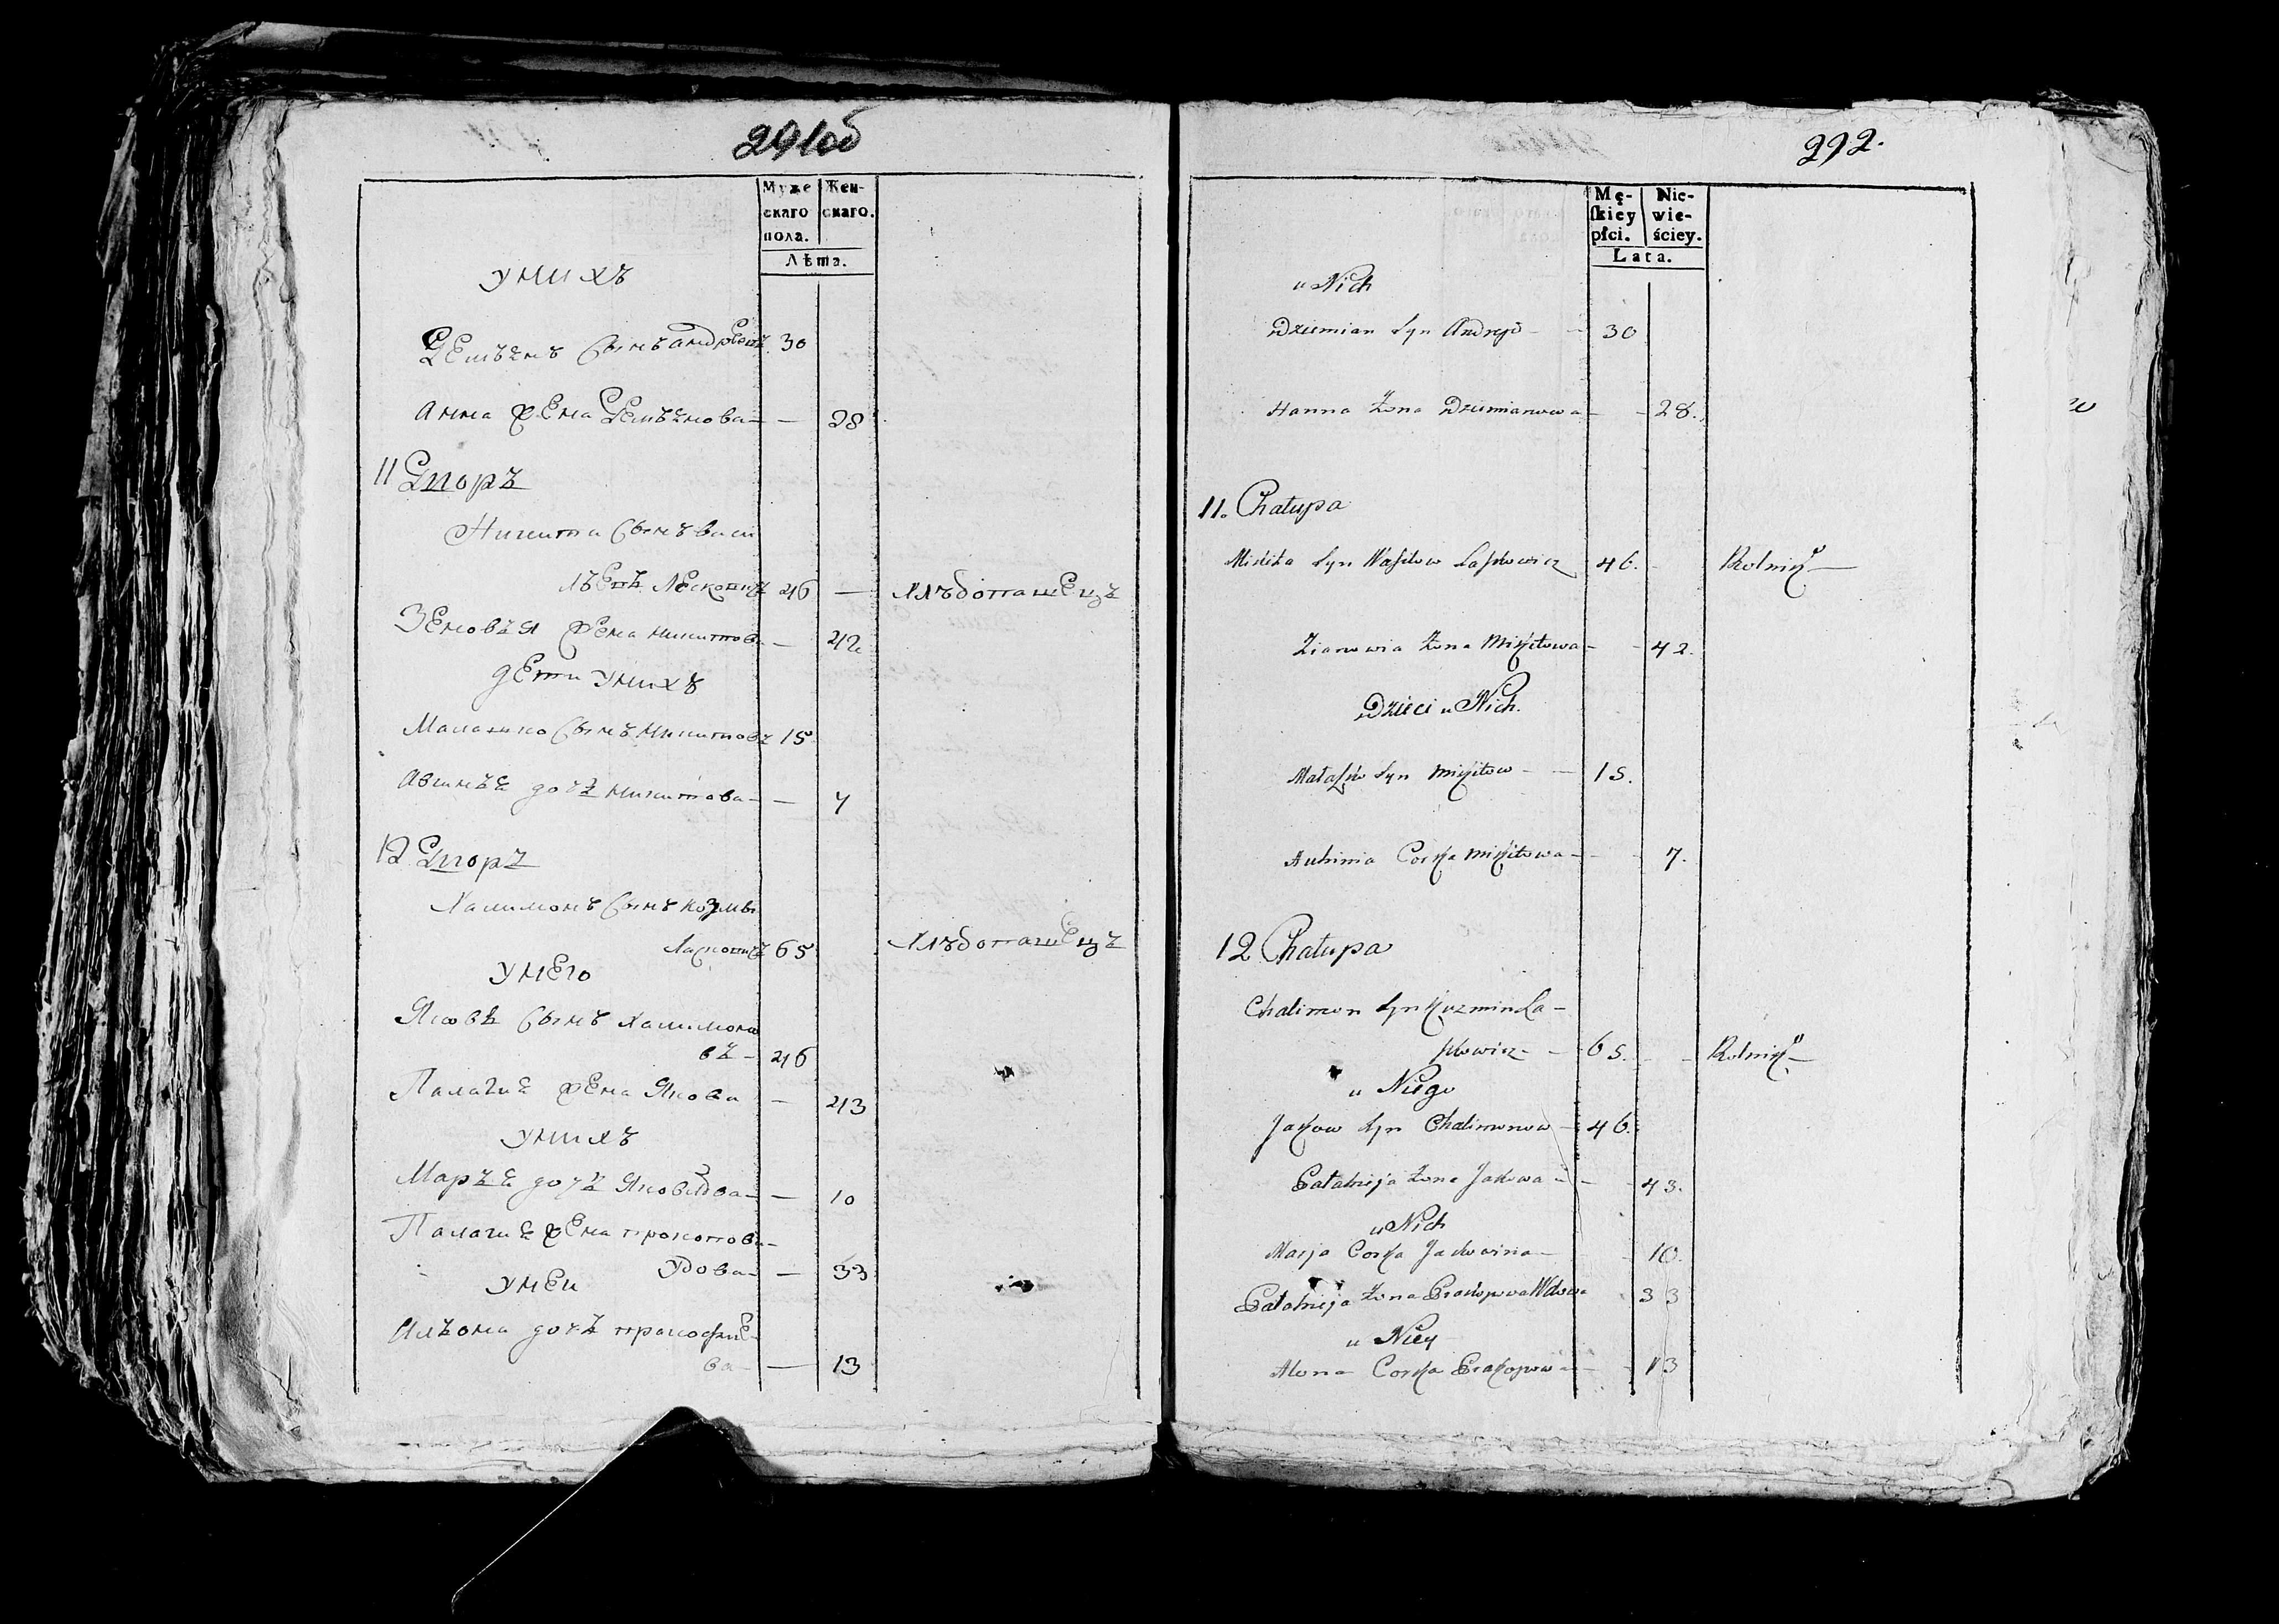 291об
Муже
скаго
пола.
Жен-
скаго.
Лѣта.
У НИХЪ
30
Анна жена
28
11 Дворъ
Никита Сынъ Васи
46 — Хлѣбопашецъ
жена Никитова — 42
дети У нихъ
Сынъ Никитовъ 15
дочь Никитова — — 7
12 Дворъ
Халимонъ Сынъ Козмы
65 Хлѣбопашецъ
У него
Яковъ Сынъ Халимоно
въ — 46
Палагия жена Якова — 43
У нихъ
Марья дочь — — 10
Палагия жена прокопова —
Удова — — 33
У ней
Алѣона дочь
ва — — 13
292.
Mę-
skiey
płci.
Nie-
wie-
ściey.
Lata.
u Nich
Dziemian Syn Andrejo — — 30
Hanna Żona Dziemianowa — — 28.
11. Chałupa
Mikita Syn Wasilow Laskowicz 46. — Rolnik —
Zianowia Żona Mikitowa — — 42.
Dzieci u Nich.
Syn Mikitow — — 15.
Auhinia Corka Mikitowa — — 7.
12 Chałupa
Chalimon Syn Kuzmin La-
skowicz — — 65. — — Rolnik —
u Niego
Jakow Syn Chalimonow — 46.
Pałahieja Żona Jakowa — — 43.
u Nich
Marja Corka Jakowina — 10.
Pałahieja Żona Prakopowa Wdowa 33
u Niey
Alona Corka Prakopowa — — 13